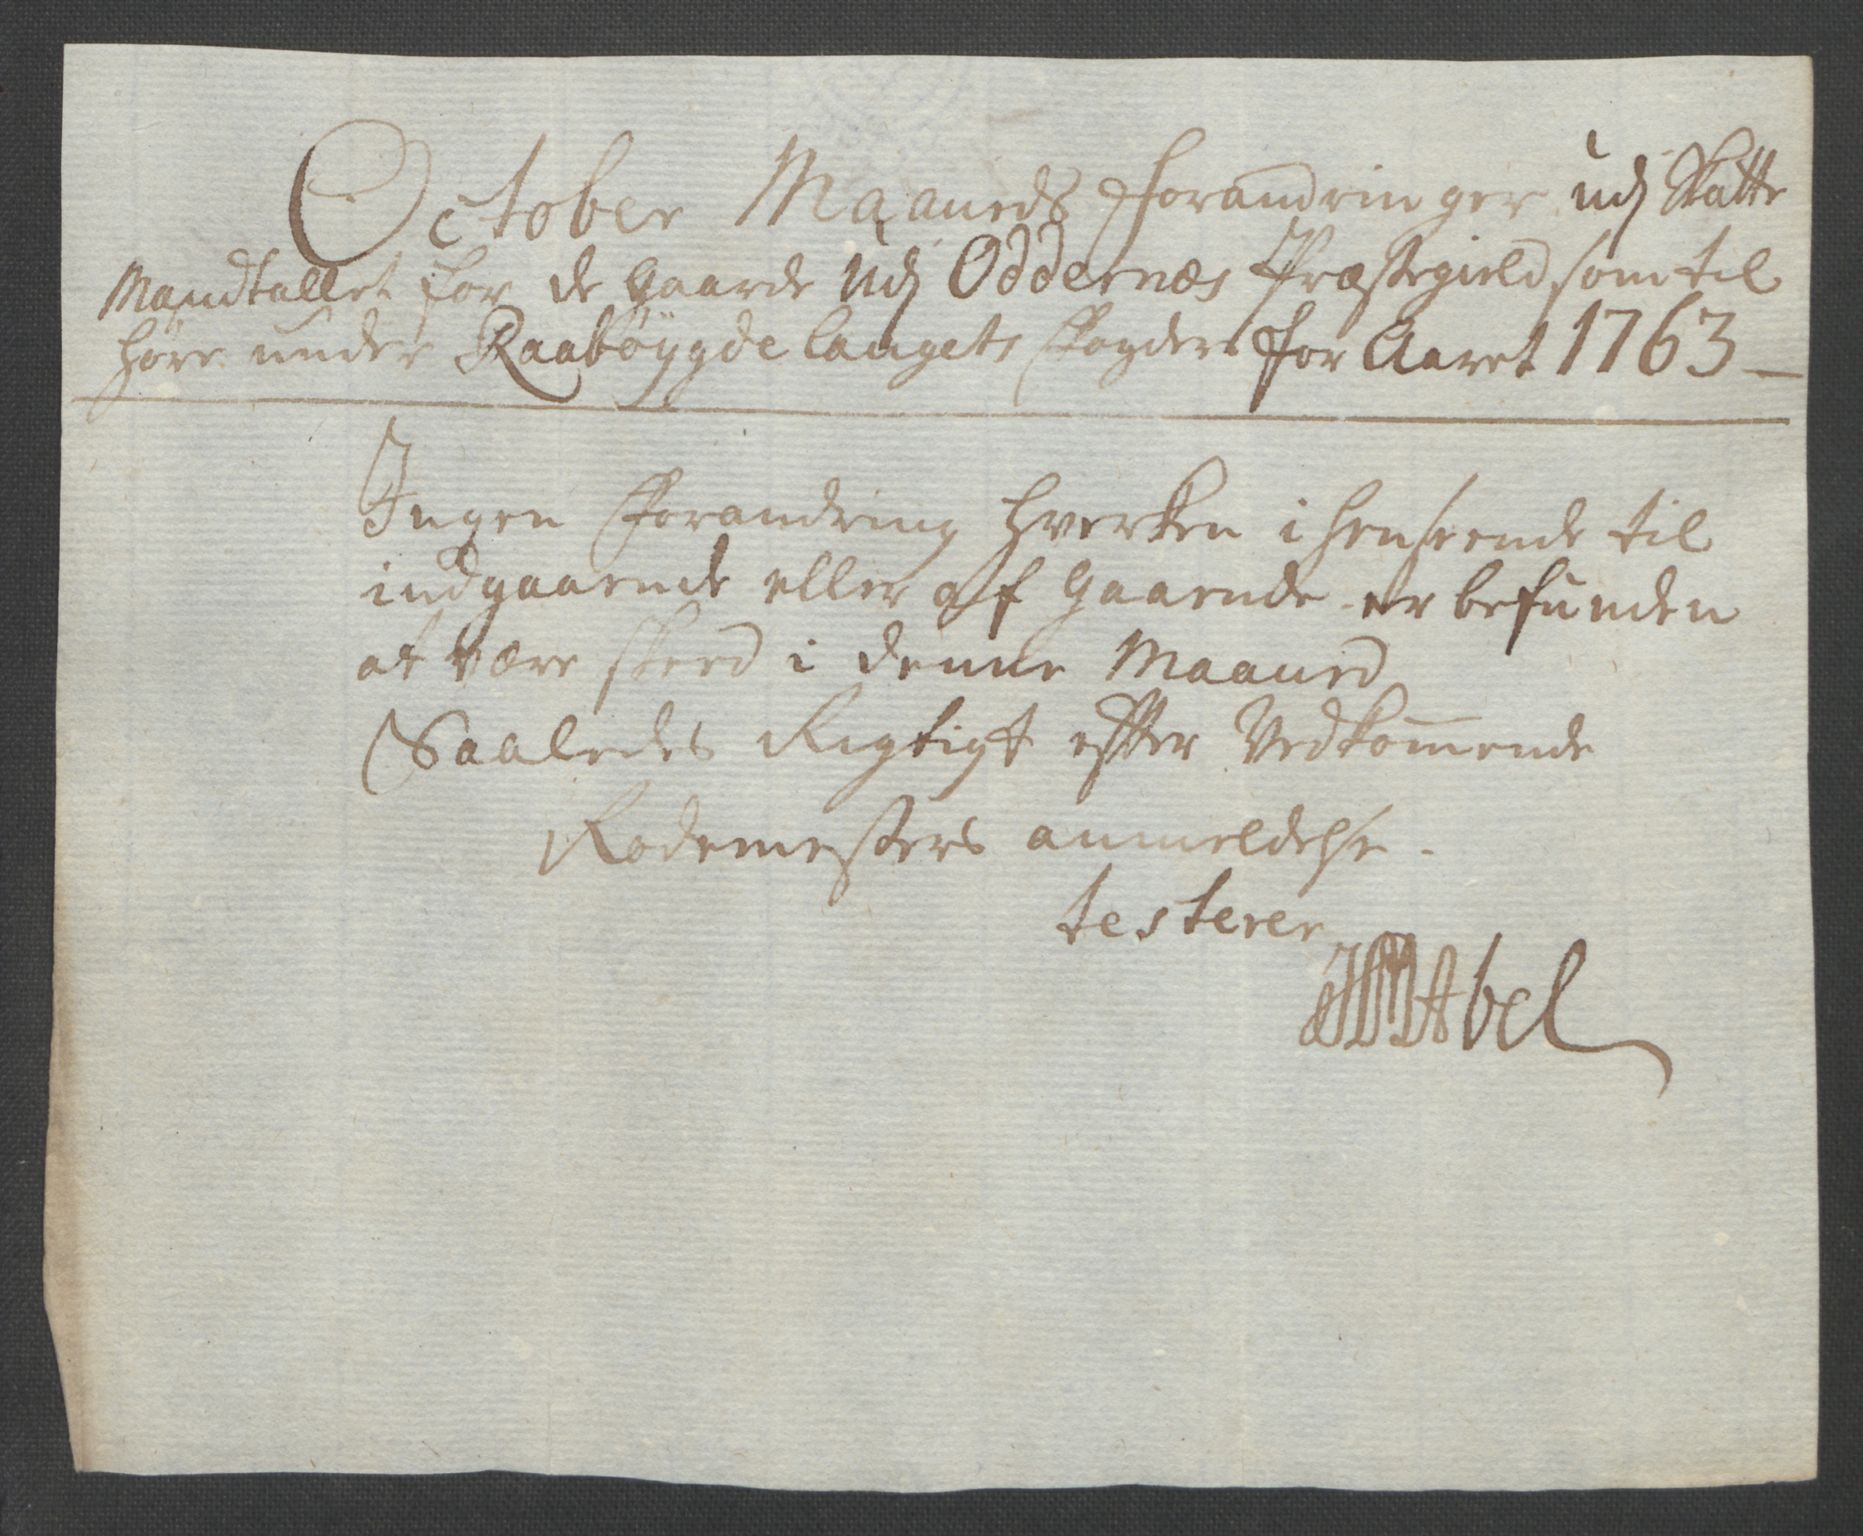 October Maaneds Forandringer udj Skatte
Mandtallet for de Gaarde udj Oddernæs Præstegield som til
høre under Raabøygdelaugets Fogderi for Aaret 1763
Ingen Forandring hverken i henseende til
indgaaende eller af gaaende er befunden
at være skeed i denne Maaned
Saaledes Rigtigt efter Vedkommende
Rodemesters anmeldelse.
testerer
Abel